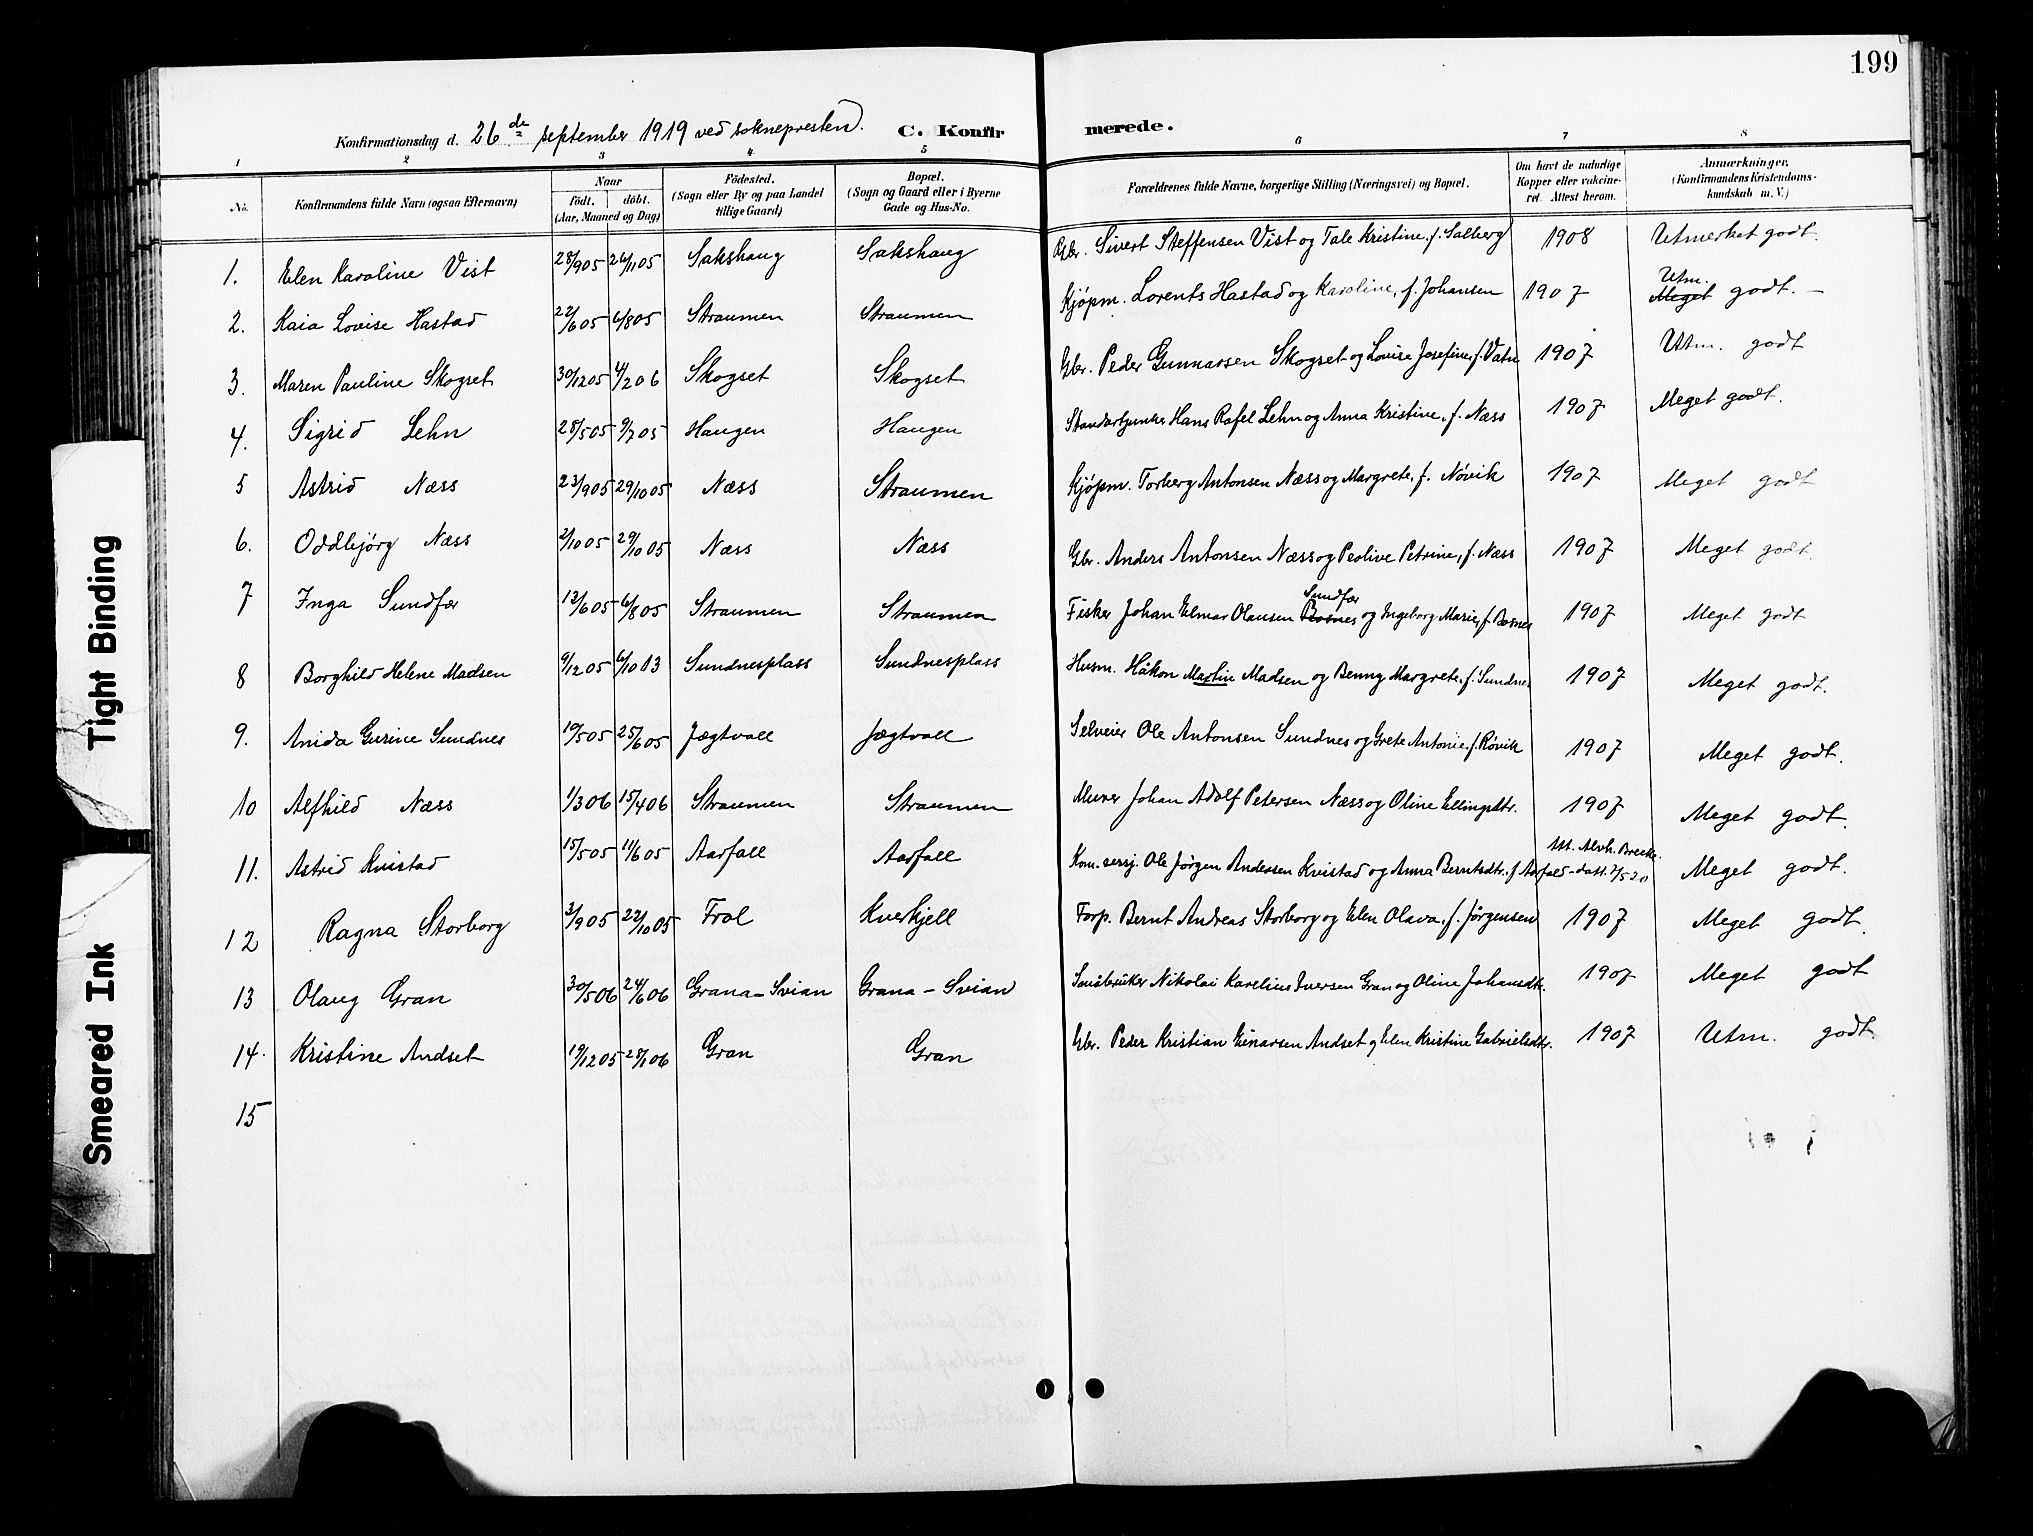 199
Konfirmationsdag d. 26de september 1919 ved soknepresten. C. Konfirmerede.
1 2 3 4 5 6 7 8
No. Konfirmandens fulde Navn (ogsaa Efternavn) Naar födt. döbt. (Aar, Maaned og Dag) Födested. (Sogn eller By og paa Landet tillige Gaard) Bopæl. (Sogn og Gaard eller i Byerne Gade og Hus-No. Forældrenes fulde Navne, borgerlige Stilling (Næringsvei) og Bopæl. Om havt de naturlige Kopper eller vaccineret. Attest herom. Anmærkninger. (Konfirmandens Kristendomskundskab m. V.)
1. Elen Karoline Vist 28/9 05 26/11 05 Sakshaug Sakshaug Gbr. Sivert Steffensen Vist og Tale Kristine, f. Salberg 1908 Utmerket godt.
2. Kaia Lovise Hastad 22/6 05 6/8 05 Straumen Straumen Kjøpm. Lorents Hastad og Karoline, f. Johansen 1907 Utm. Meget godt. –
3. Maren Pauline Skogset 30/12 05 4/2 06 Skogset Skogset Gbr. Peder Gunnarsen Skogset og Lovise Josefine, f. Vatn 1907 Utm. godt
4. Sigrid Lehn 28/5 05 9/7 05 Haugen Haugen Standartjunker Hans Rafel Lehn og Anna Kristine, f. Næss 1907 Meget godt.
5 Astrid Næss 23/9 05 29/10 05 Næss Straumen Kjøpm. Torberg Antonsen Næss og Margrete, f. Nøvik 1907 Meget godt
6. Oddbjørg Næss 2/10 05 29/10 05 Næss Næss Gbr. Anders Antonsen Næss og Peolive Petrine, f. Næss 1907 Meget godt.
7 Inga Sundfær 13/6 05 6/8 05 Straumen Straumen Fisker Johan Elmar Olausen Bosnes Sundfær og Ingeborg Marie, f. Bosnes 1907 Meget godt
8 Borghild Helene Madsen 9/12 05 6/10 13 Sundnesplass Sundnesplass Husm. Håkon Martin Madsen og Benny Margrete, f. Sundnes 1907 Meget godt.
9. Anida Gurine Sundnes 19/5 05 25/6 05 Jægtvoll Jægtvoll Selveier Ole Antonsen Sundnes og Grete Antonie, f. Røvik 1907 Meget godt.
10 Alfhild Næss 1/3 06 15/4 06 Straumen Straumen Murer Johan Adolf Petersen Næss og Oline Ellingsdtr. 1907 Meget godt.
11. Astrid Kvistad 15/5 05 11/6 05 Aarfall Aarfall Kom. sersj. Ole Jørgen Andersen Kvistad og Anna Berntsdtr. f. Aarfald – datt. 7/5 20 Meget godt.
12 Ragna Storborg 3/9 05 22/10 05 Frol Kverkjell Forp. Bernt Andreas Storborg og Elen Olava, f. Jørgensen 1907 Meget godt.
13 Olaug Gran 30/5 06 24/6 06 Grana – Svian Grana – Svian Småbruker Nikolai Karelius Iversen Gran og Oline Johansdtr. 1907 Meget godt
14. Kristine Andset 19/12 05 28/1 06 Gran Gran Gbr. Peder Kristian Einarsen Andset og Elen Kristine Gabrielsdtr. 1907 Utm. godt.
15
Tight Binding
Smeared Ink